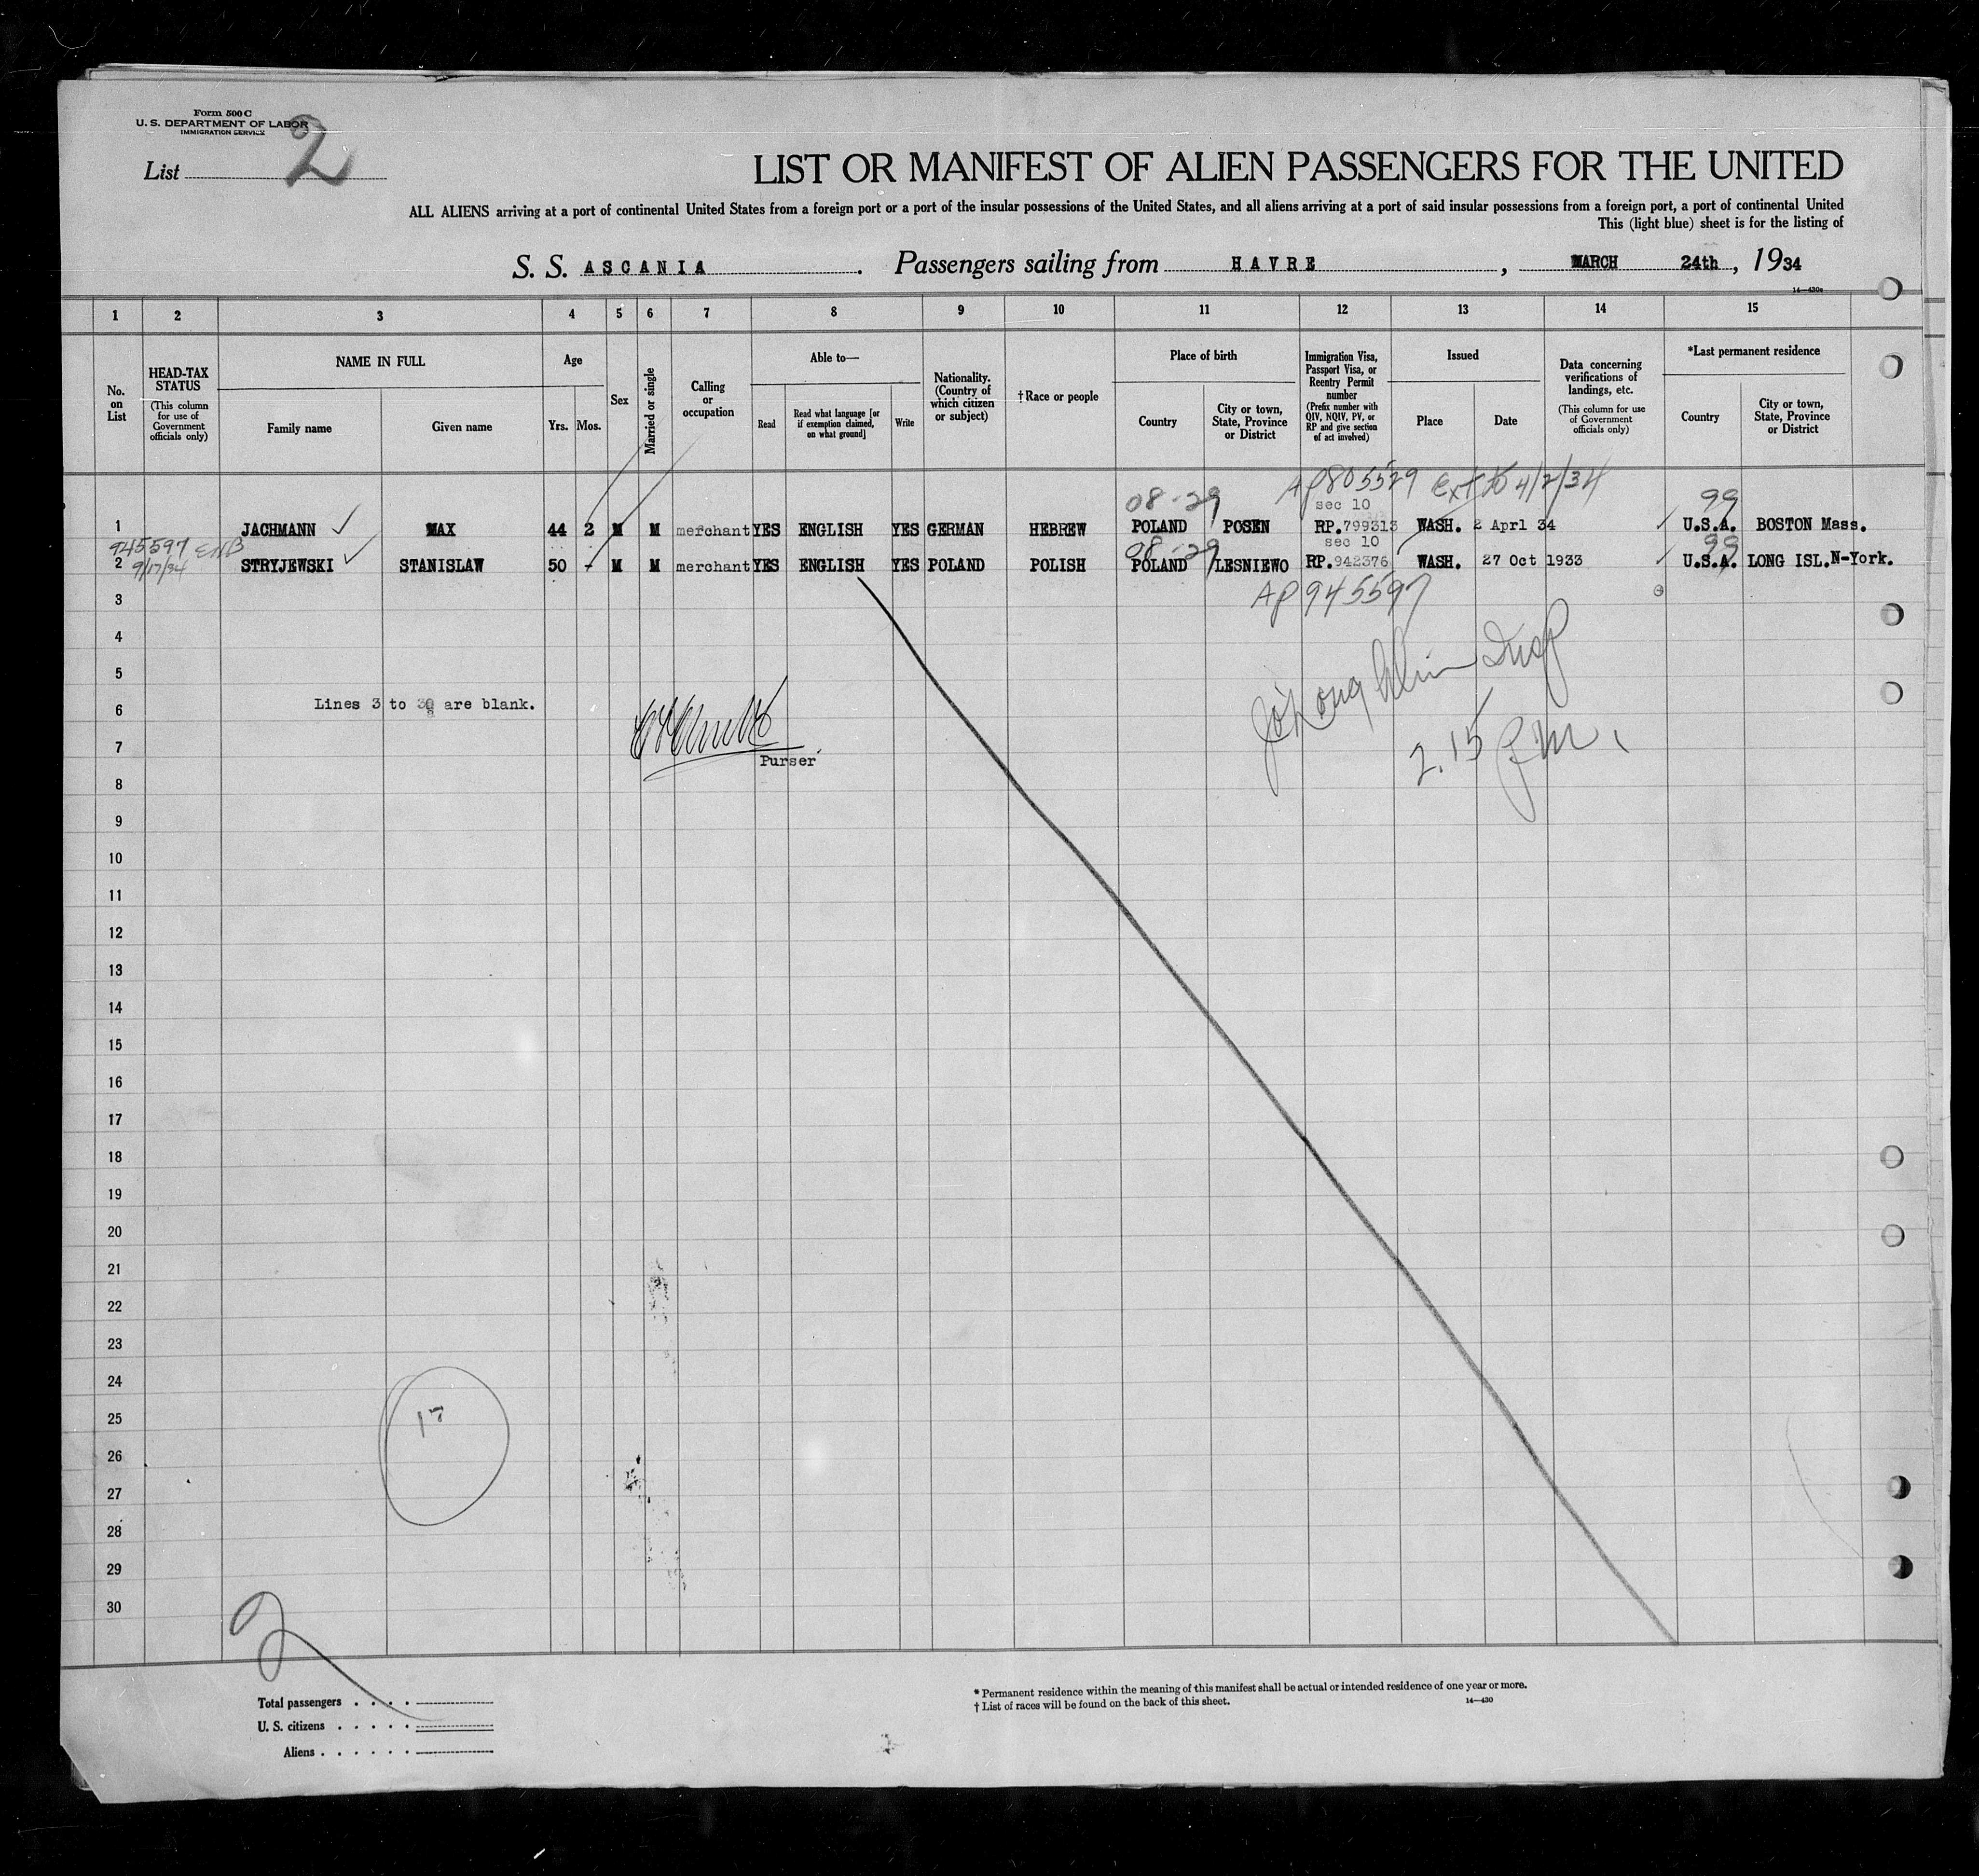 Form 500 C
U. S. DEPARTMENT OF LABOR
IMMIGRATION SERVICE
List 2
LIST OR MANIFEST OF ALIEN PASSENGERS FOR THE UNITED
ALL ALIENS arriving at a port of continental United States from a foreign port or a port of the insular possessions of the United States, and all aliens arriving at a port of said insular possessions from a foreign port, a port of continental United
This (light blue) sheet is for the listing of
S. S. ASCANIA. Passengers sailing from HAVRE, MARCH 24th, 1934
14—430c
1 2 3 4 5 6 7 8 9 10 11 12 13 14 15
No. on List
HEAD-TAX STATUS
(This column for use of Government officials only)
NAME IN FULL
Family name
Given name
Age
Yrs. Mos.
Sex
Married or single
Calling or occupation
Able to—
Read
Read what language [or if exemption claimed, on what ground]
Write
Nationality. (Country of which citizen or subject)
†Race or people
Place of birth
Country
City or town, State, Province or District
Immigration Visa, Passport Visa, or Reentry Permit number
(Prefix number with QIV, NQIV, PV, or RP and give section of act involved)
Issued
Place
Date
Data concerning verifications of landings, etc.
(This column for use of Government officials only)
*Last permanent residence
Country
City or town, State, Province or District
AP805529 Ext to 4/2/34
08-29 sec 10 99
1 JACHMANN MAX 44 2 M M merchant YES ENGLISH YES GERMAN HEBREW POLAND POSEN RP.799313 WASH. 2 Aprl 34 U.S.A. BOSTON Mass.
945597
08-29 sec 10 99
2 9/17/34 STRYJEWSKI STANISLAW 50 - M M merchant YES ENGLISH YES POLAND POLISH POLAND LESNIEWO RP.942376 WASH. 27 Oct 1933 U.S.A. LONG ISL.N-York.
AP945597
3
4
5
Lines 3 to 30 are blank.
6
7
Purser
2.15 Pm.
8
9
10
11
12
13
14
15
16
17
18
19
20
21
22
23
24
25
17
26
27
28
29
30
2
Total passengers
U. S. citizens
Aliens
* Permanent residence within the meaning of this manifest shall be actual or intended residence of one year or more.
† List of races will be found on the back of this sheet.
14—430